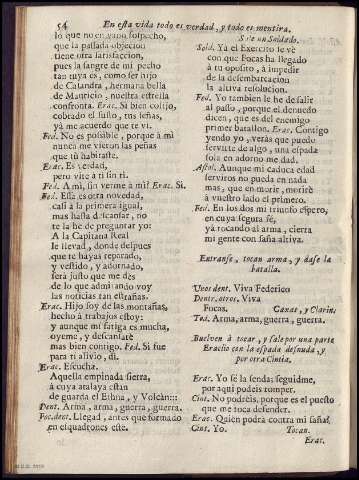 54 En esta vida todo es verdad, y todo es mentira.
lo que no en vano sospecho,
que la passada objecion
tiene otra satisfacion,
pues la sangre de mi pecho
tan tuya es, como ser hijo
de Casandra, hermana bella
de Mauricio, nuestra estrella
confronta. Erac. Si bien colijo,
cobrado el susto, tus señas,
yà me acuerdo que te vì.
Fed. No es possible, porque à mì
nunca me vieron las peñas
que tù habitaste.
Erac. Es verdad,
pero vite à tì sin tì.
Fed. A mì, sin verme à mì? Erac. Si.
Fed. Essa es otra novedad,
casi à la primera igual,
mas hasta descansar, no
te la he de preguntar yo:
A la Capitana Real
le llevad, donde despues
que te hayas reparado,
y vestido, y adornado,
serà justo que me dès
de lo que admirando voy
las noticias tan estrañas.
Erac. Hijo soy de las montañas,
hecho à trabajos estoy:
y aunque mi fatiga es mucha,
oyeme, y descansarè
mas bien contigo. Fed. Si fue
para tì alivio, dì.
Erac. Escucha.
Aquella empinada sierra,
à cuya atalaya estàn
de guarda el Ethna, y Volcàn:::
Dent. Arma, arma, guerra, guerra.
Foc. dent. Llegad, antes que formado
en esquadrones este.
Sale un Soldado.
Sold. Yà el Exercito se vè
con que Focas ha llegado
à tu oposito, à impedir
de la desembarcacion
la altiva resolucion.
Fed. Yo tambien le he de salir
al passo, porque el denuedo
dicen, que es del enemigo
primer batallon. Erac. Contigo
yendo yo, veràs que puedo
servirte de algo, una espada
sola en adorno me dad.
Astol. Aunque mi caduca edad
serviros no pueda en nada
mas, que en morir, morirè
à vuestro lado el primero.
Fed. En los dos mi triunfo espero,
en cuya segura fè,
yà tocando al arma, cierra
mi gente con saña altiva.
Entranse, tocan arma, y dase la
batalla.
Unos dent. Viva Federico
Dentr. otros. Viva
Focas. Caxas, y Clarin.
Tod. Arma, arma, guerra, guerra.
Buelven à tocar, y sale por una parte
Eraclio con la espada desnuda, y
por otra Cintia.
Erac. Yo sè la senda: seguidme,
por aqui podeis romper.
Cint. No podreis, porque es el puesto
que me toca defender.
Erac. Quien podrà contra mi saña?
Cint. Yo. Tocan.
Erac.